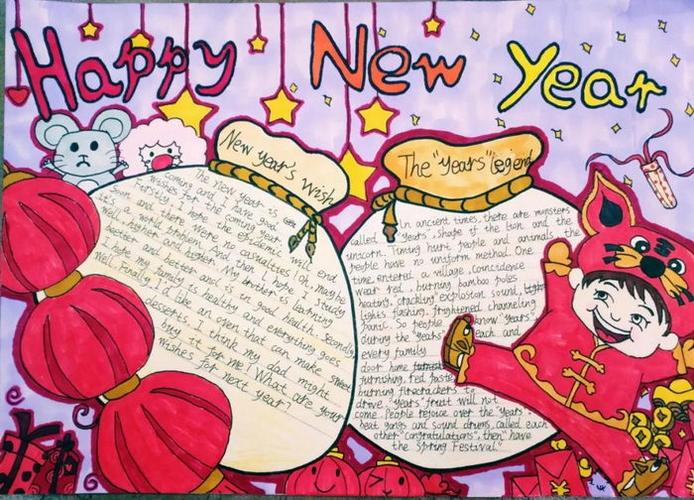 Happy New Year
New Year's Wish
The New Year is
coming and I have good
wishes for the coming year.
Firstly, I hope the epidemic will end
Soon and there were no casualties. Oh, maybe
it's a world problem. And then I hope I study
well, higher and higher. My brother is learning
better and better and is in good health. Secondly,
I hope my family is healthy and everything goes
Well. Finally, I'd like an oven that can make sweet
desserts. I think my dad might
buy it for me! What are your
wishes for next year?
The "years" legend
In ancient times, there are monsters
called "years", shape if the lion and the
unicorn. Timing hurt people and animals, the
people have no uniform method. One
time entered a village, coincidence
wear red, burning bamboo poles
heating, crackling explosion sound,
lights flashing, frightened channeling
panic. So people know "years".
during the "years" each and
every family
door home
furnishing, red paste
burning firecrackers to
drive. "years" fruit will not
come. People rejoice over the "years".
beat gongs and sound drums, called each
other "congratulations", then "have
the Spring Festival."